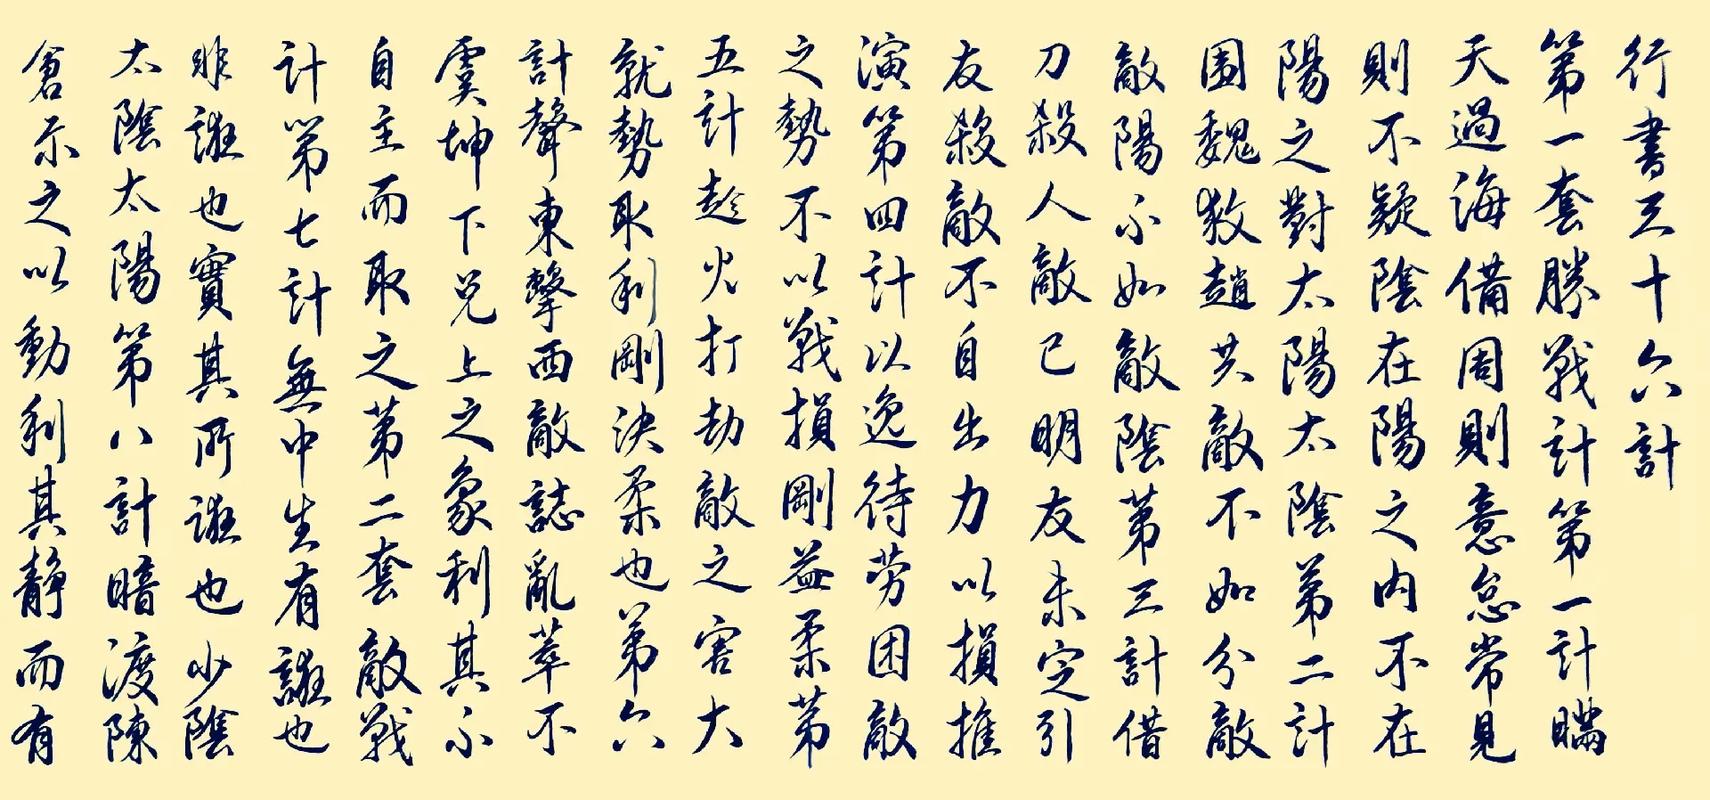 行書三十六計
第一套勝戰計第一計瞞
天過海備周則意怠常見
則不疑陰在陽之內不在
陽之對太陽太陰第二計
圍魏救趙共敵不如分敵
敵陽不如敵陰第三計借
刀殺人敵已明友未定引
友殺敵不自出力以損推
演第四計以逸待勞困敵
之勢不以戰損剛益柔第
五計趁火打劫敵之害大
就勢取利剛決柔也第六
計聲東擊西敵誌亂萃不
虞坤下兌上之象利其不
自主而取之第二套敵戰
計第七計無中生有誑也
非誑也實其所誑也少陰
太陰太陽第八計暗渡陳
倉示之以動利其靜而有